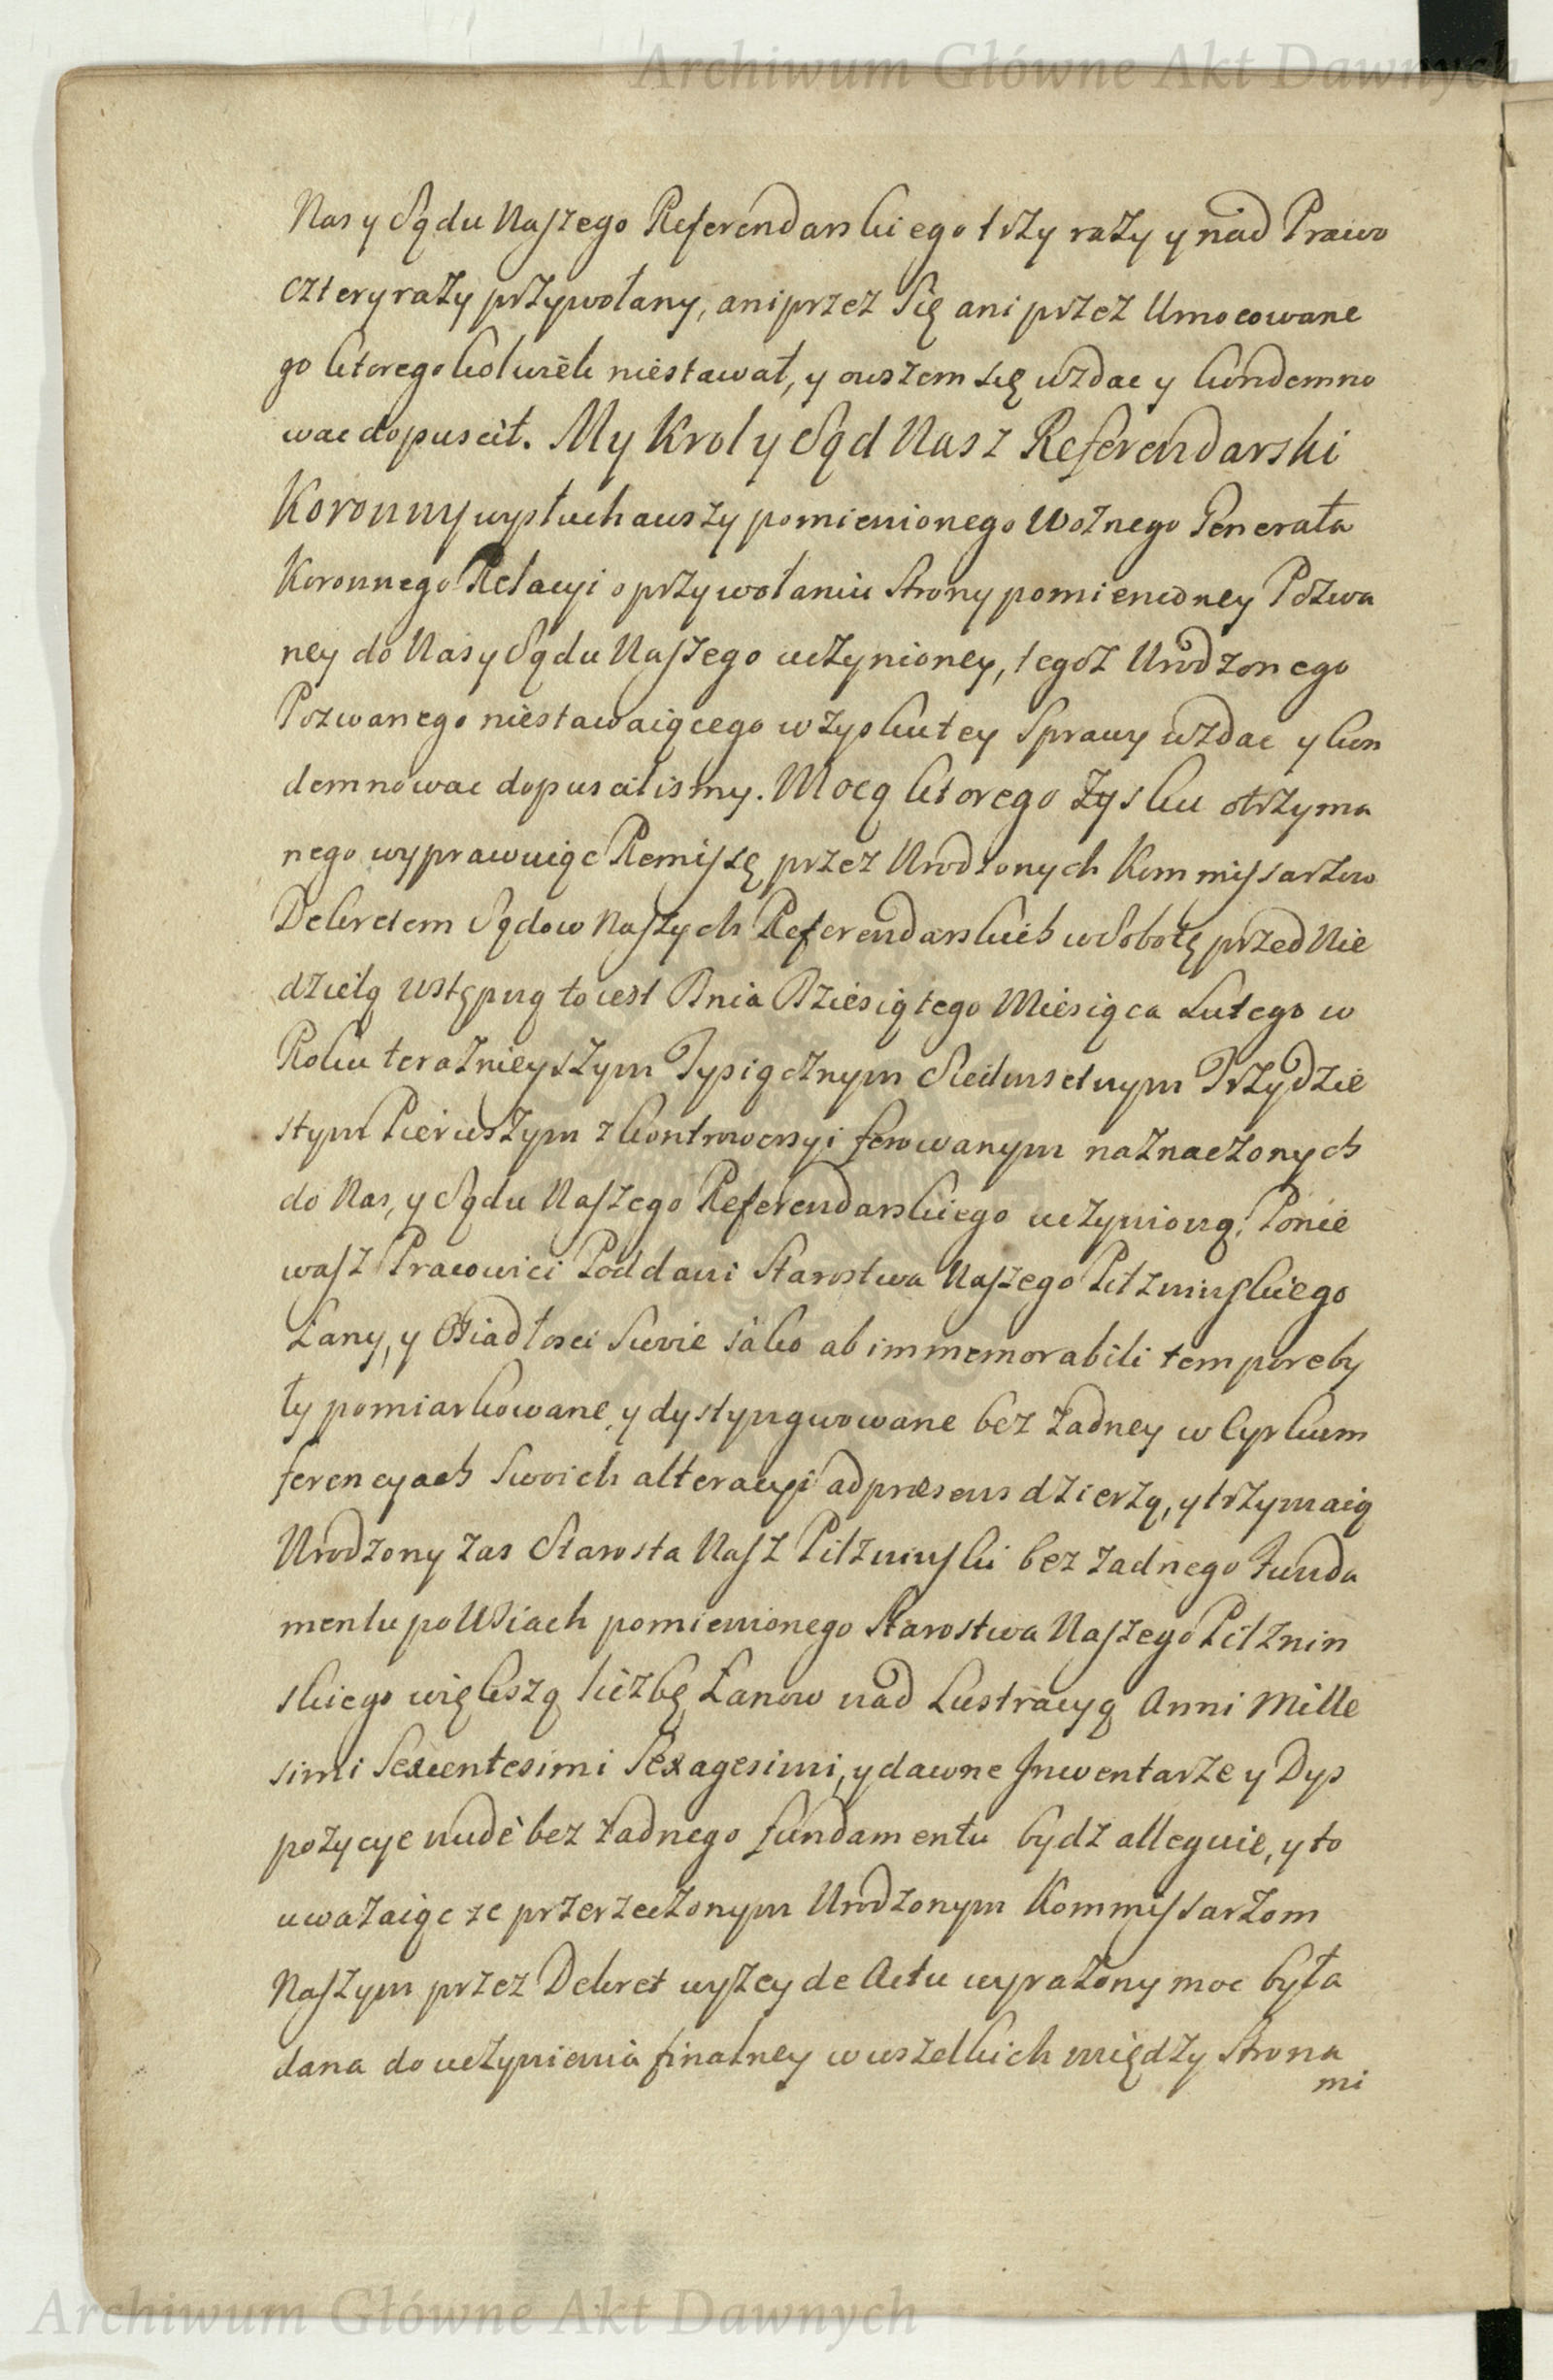 Archiwum Główne Akt Dawnych
Nas y Sądu Naszego Referendarskiego trzy razy y nad Prawo
cztery razy przywołany, ani przez Się ani przez Umocowane
go ktoregokolwiek niestawał, y owszem się wzdac y kondemno
wac dopuscił. My Krol y Sąd Nasz Referendarski
Koronny wysłuchawszy pomienionego Woznego Generała
Koronnego Relacyi o przywołaniu Strony pomienioney Pozwa
ney do Nas y Sądu Naszego uczynioney, tegoz Urodzonego
Pozwanego niestawaiącego w zysku tey Sprawy wzdac y kon
demnowac dopuscilismy. Mocą ktorego Zysku otrzyma
nego wyprawuiąc Remissę przez Urodzonych Kommissarzow
Dekretem Sądow Naszych Referendarskich w Sobotę przed Nie
dzielą Wstępną to iest Dnia Dziesiątego Miesiąca Lutego w
Roku teraznieyszym Tysiącznym Siedmsetnym Trzydzie
stym Pierwszym z kontrowersyi ferowanym naznaczonych
do Nas, y Sądu Naszego Referendarskiego uczynioną. Ponie
wasz Pracowici Poddani Starostwa Naszego Pilzninskiego
Łany, y Osiadłosci Swoie iako ab immemorabili tempore by
ły pomiarkowane y dystyngwowane bez zadney w Cyrkum
ferencyach Swoich alteracyi ad præsens dzierzą, y trzymaią
Urodzony zas Starosta Nasz Pilzninski bez zadnego Funda
mentu po Wsiach pomienionego Starostwa Naszego Pilznin
skiego większą liczbę Łanow nad Lustracyą Anni Mille
simi Sexcentesimi Sexagesimi, y dawne Inwentarze y Dys
pozycye nudè bez zadnego fundamentu bydz alleguie, y to
uwazaiąc ze przerzeczonym Urodzonym Kommissarzom
Naszym przez Dekret wyzey de Actu wyrazony moc była
dana do uczynienia finalney wwszelkich między Strona
mi
Archiwum Główne Akt Dawnych